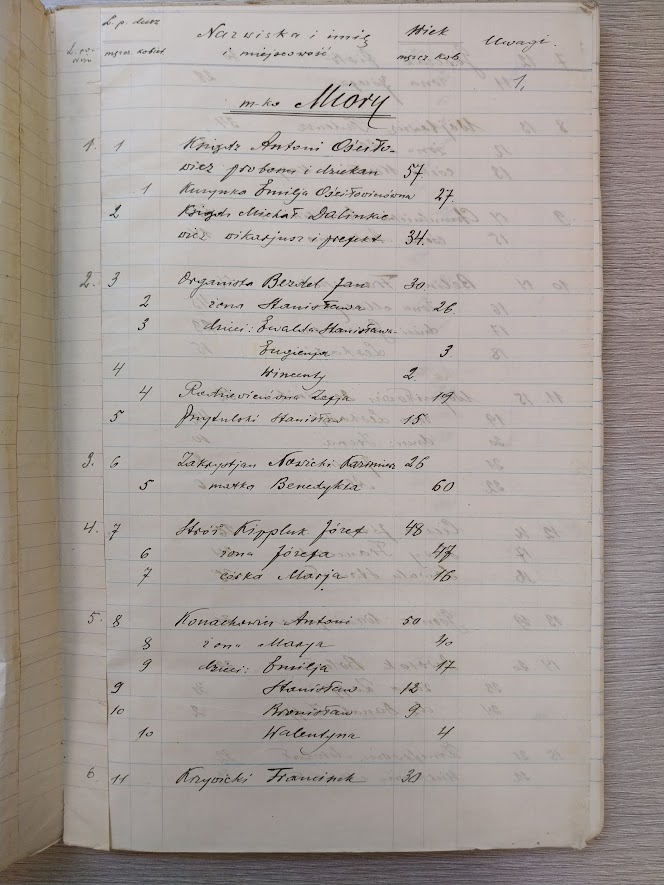 L. p. dusz Nazwiska i imię Wiek Uwagi.
męzcz. kobiet i miejscowość męzcz. kob.
1,
m-ko Miory
1. 1 Ksiądz Antoni Ościło-
wicz proboszcz i dziekan 57.
1 Kuzynka Emilja Ościłowiczówna 27.
2 Ksiądz Michał Dalinkie
wicz wikarjusz i prefekt 34.
2. 3 Organista Bezdel Jan 30
2 żona Stanisława 26.
3 dzieci: Ewalda-Stanisława-
Eugenja 3.
4 Wincenty 2.
4 Zofja 19
5 Stanisław 15
3. 6 Zakrystjan Nowicki Kazimierz 26
5 matka Benedykta 60
4. 7 Stróż Kippluk Józef 48
6 żona Józefa 47
7 córka Marja 16
5. 8 Konachowicz Antoni 50
8 żona Marja 40
9 dzieci: Emilja 17
9 Stanisław 12
10 Bronisław 9
10 Walentyna 4
6 11 Krzywicki Franciszek 30